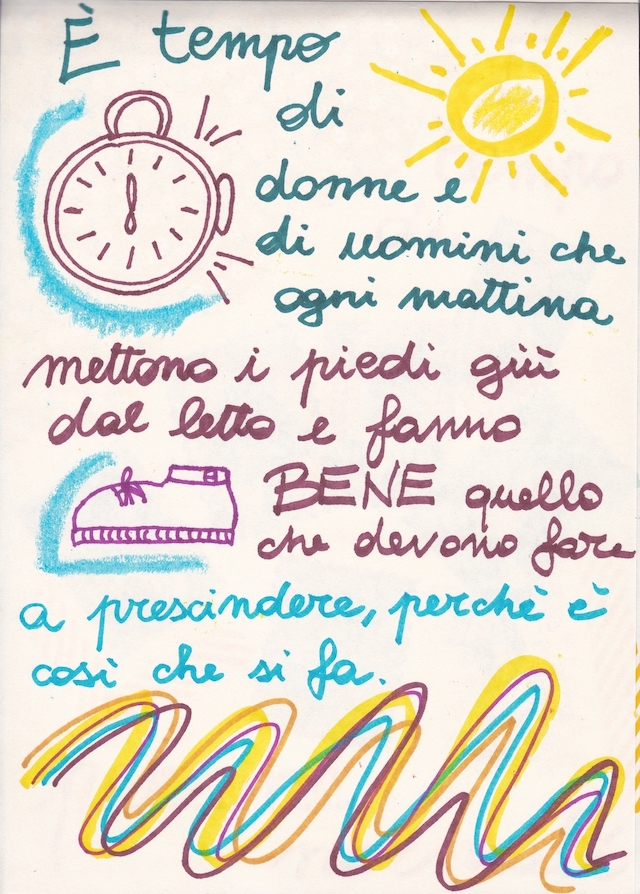 È tempo
di
donne e
di uomini che
ogni mattina
mettono i piedi giù
dal letto e fanno
BENE quello
che devono fare
a prescindere, perchè è
così che si fa.